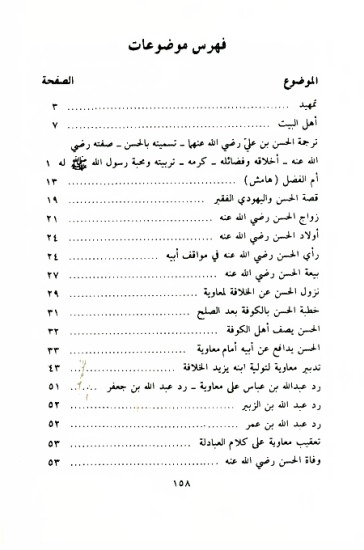 فهرس موضوعات
الموضوع الصفحة
تمهيد ٣
أهل البيت ٧
ترجمة الحسن بن علي رضي الله عنها ـ تسميته بالحسن ـ صفته رضي
الله عنه ـ أخلاقه وفضائله ـ كرمه ـ تربيته ومحبة رسول الله ﷺ له ١
أم الفضل (هامش) ١٣
قصة الحسن واليهودي الفقير ١٩
زواج الحسن رضي الله عنه ٢١
أولاد الحسن رضي الله عنه ٢٤
رأي الحسن رضي الله عنه في مواقف أبيه ٢٤
بيعة الحسن رضي الله عنه ٢٧
نزول الحسن عن الخلافة لمعاوية ٢٩
خطبة الحسن بالكوفة بعد الصلح ٣١
الحسن يصف أهل الكوفة ٣٢
الحسن يدافع عن أبيه أمام معاوية ٣٣
تدبير معاوية لتولية ابنه يزيد الخلافة ٤٣
رد عبدالله بن عباس على معاوية ـ رد عبد الله بن جعفر ٥١
رد عبد الله بن الزبير ٥٢
رد عبد الله بن عمر ٥٢
تعقيب معاوية على كلام العبادلة ٥٣
وفاة الحسن رضي الله عنه ٥٣
١٥٨